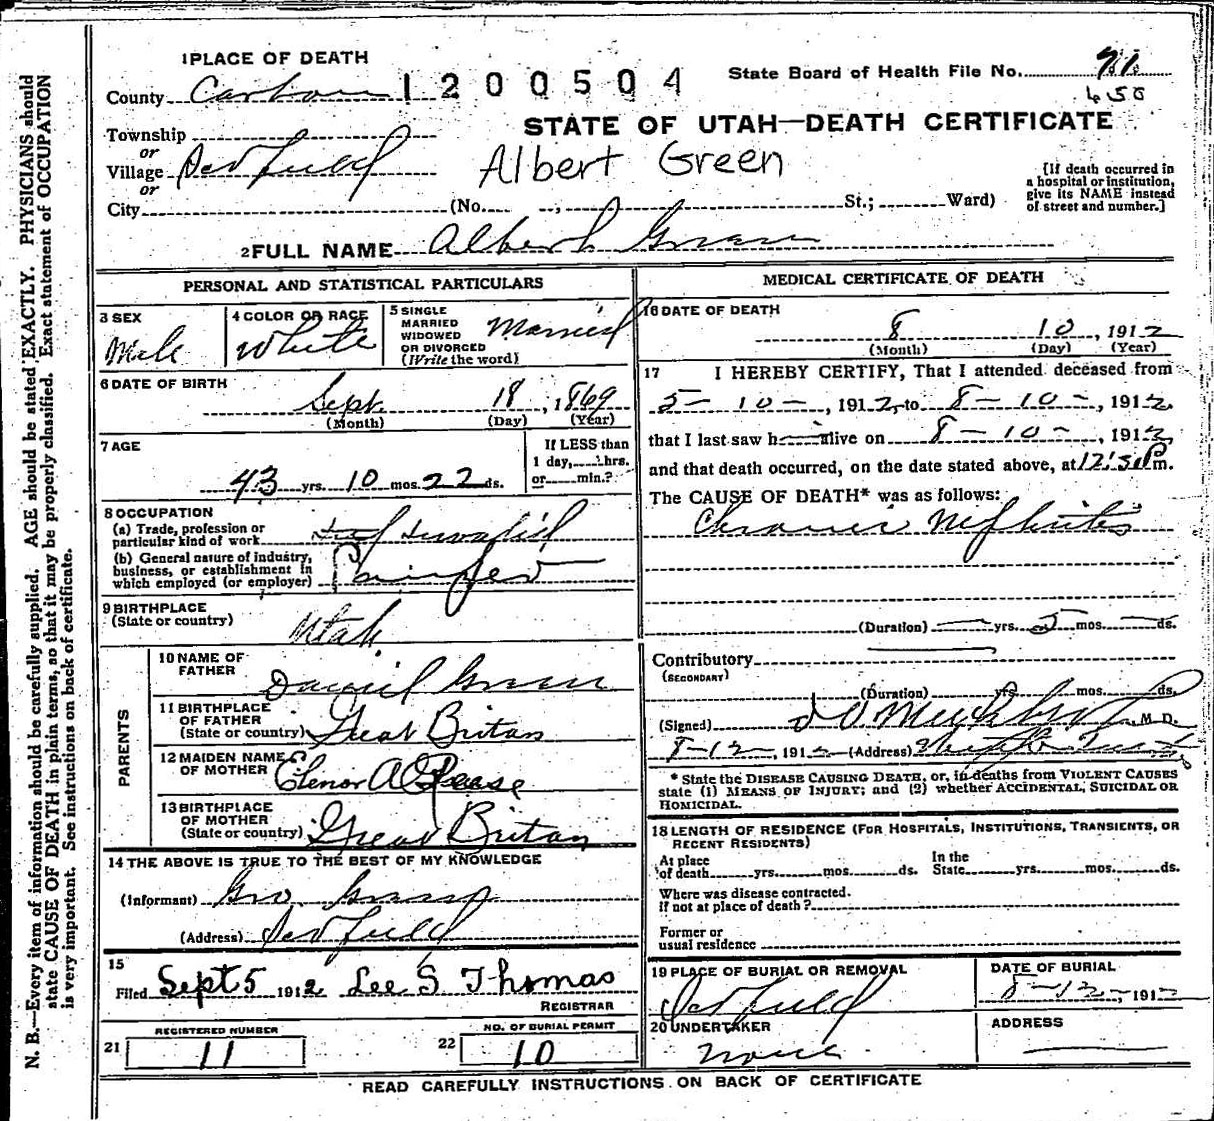 1 PLACE OF DEATH
County Carbon 1200504
State Board of Health File No. 71
450
Township
or
Village
or
City (No. , St.; Ward)
STATE OF UTAH—DEATH CERTIFICATE
Albert Green
[If death occurred in
a hospital or institution,
give its NAME instead
of street and number.]
2 FULL NAME Albert Green
PERSONAL AND STATISTICAL PARTICULARS
3 SEX
Male
4 COLOR OR RACE
White
5 SINGLE
MARRIED
WIDOWED
OR DIVORCED
(Write the word)
Married
6 DATE OF BIRTH
Sept. 18, 1869
(Month) (Day) (Year)
7 AGE
43 yrs. 10 mos. 22 ds.
If LESS than
1 day, hrs.
or min.?
8 OCCUPATION
(a) Trade, profession or
particular kind of work
(b) General nature of industry,
business, or establishment in
which employed (or employer)
9 BIRTHPLACE
(State or country)
Utah
PARENTS
10 NAME OF
FATHER
Daniel Green
11 BIRTHPLACE
OF FATHER
(State or country) Great Britan
12 MAIDEN NAME
OF MOTHER Elenor A
13 BIRTHPLACE
OF MOTHER
(State or country) Great Britan
14 THE ABOVE IS TRUE TO THE BEST OF MY KNOWLEDGE
(Informant) Geo. Green
(Address)
15
Filed Sept 5 1912 Lee S Thomas
REGISTRAR
REGISTERED NUMBER
21 11
NO. OF BURIAL PERMIT
22 10
MEDICAL CERTIFICATE OF DEATH
16 DATE OF DEATH
8 10, 1912
(Month) (Day) (Year)
17 I HEREBY CERTIFY, That I attended deceased from
5-10-, 1912, to 8-10-, 1912,
that I last saw h alive on 8-10-, 1912,
and that death occurred, on the date stated above, at m.
The CAUSE OF DEATH* was as follows:
Chronic Nephritis
(Duration) yrs. 5 mos. ds.
Contributory
(SECONDARY)
(Duration) yrs. mos. ds.
(Signed) M. D.
8-12-, 1912 (Address)
* State the DISEASE CAUSING DEATH, or, in deaths from VIOLENT CAUSES
state (1) MEANS OF INJURY; and (2) whether ACCIDENTAL, SUICIDAL OR
HOMICIDAL.
18 LENGTH OF RESIDENCE (FOR HOSPITALS, INSTITUTIONS, TRANSIENTS, OR
RECENT RESIDENTS)
At place
of death yrs. mos. ds.
In the
State yrs. mos. ds.
Where was disease contracted.
If not at place of death?
Former or
usual residence
19 PLACE OF BURIAL OR REMOVAL
DATE OF BURIAL
8-12-, 1912
20 UNDERTAKER
None
ADDRESS
READ CAREFULLY INSTRUCTIONS ON BACK OF CERTIFICATE
N. B.—Every item of information should be carefully supplied. AGE should be stated EXACTLY. PHYSICIANS should
state CAUSE OF DEATH in plain terms, so that it may be properly classified. Exact statement of OCCUPATION
is very important. See instructions on back of certificate.